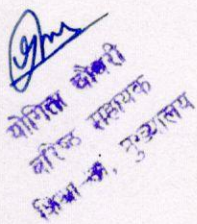 योगिता चौधरी
वरिष्ठ सहायक
शिक्षा-सी, मुख्यालय